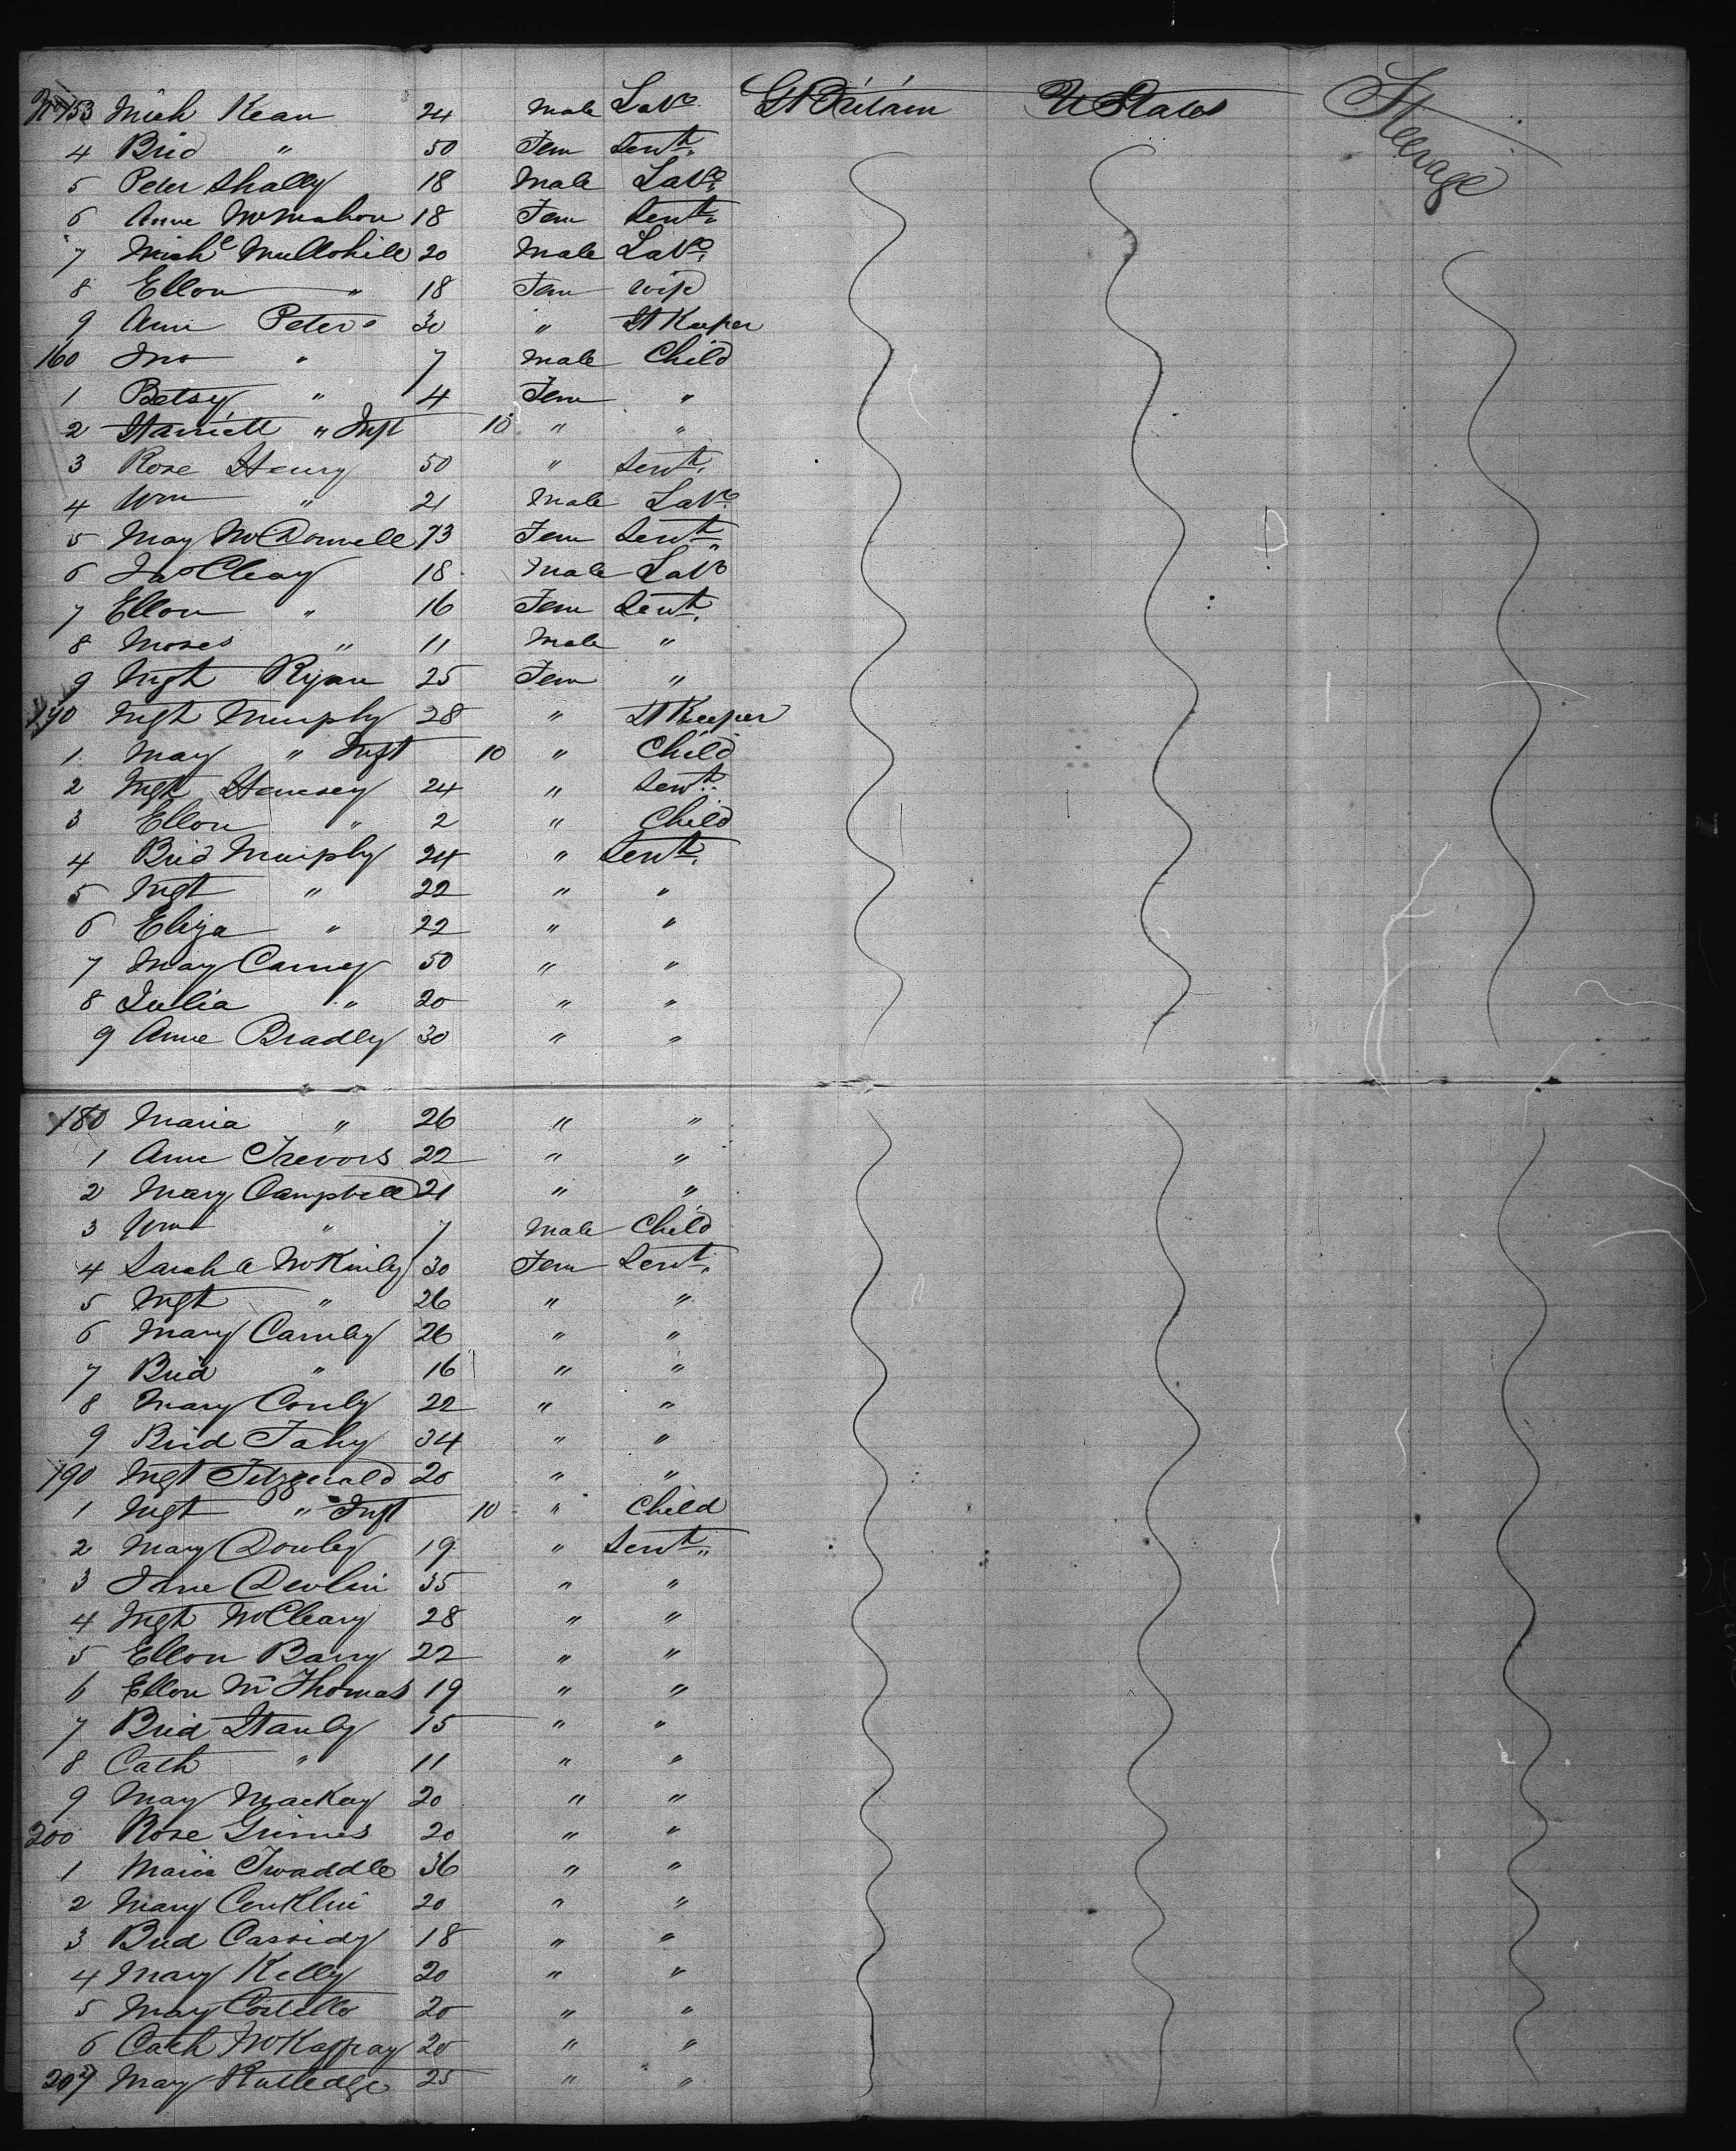 No 153 Mich Kean 24 Male Labr Gt Britain U States Steerage
4 Brid " 50 Fem Servt.
5 Peter Shally 18 Male Labr.
6 Anne McMahon 18 Fem Servt.
7 Michl Mullohill 20 Male Labr.
8 Ellen " 18 Fem Wife
9 Ann Peters 30 " H Keeper
160 Jno " 7 Male Child
1 Betsy " 4 Fem "
2 Harriett " Inft 10 " "
3 Rose Henry 50 " Servt.
4 Wm " 21 Male Labr.
5 May McDonnell 73 Fem Servt.
6 Jas Cleay 18 Male Labr
7 Ellen " 16 Fem Servt.
8 Moses " 11 Male "
9 Mgt Ryan 25 Fem "
170 Mgt Murphy 28 " H Keeper
1 May " Inft 10 " Child
2 Mgt Hennsey 24 " Servt.
3 Ellen " 2 " Child
4 Brid Murphy 24 " Servt.
5 Mgt " 22 " "
6 Eliza " 22 " "
7 May Carney 50 " "
8 Julia " 20 " "
9 Anne Bradly 30 " "
180 Maria " 26 " "
1 Anne Trevors 22 " "
2 Mary Campbell 21 " "
3 Wm " 7 Male Child
4 Sarah A McKinly 30 Fem Servt.
5 Mgt " 26 " "
6 Mary Carnly 26 " "
7 Brid " 16 " "
8 Mary Conly 22 " "
9 Brid Fahy 34 " "
190 Mgt Fitzgerald 20 " "
1 Mgt " Inft 10 " Child
2 Mary Dowley 19 " Servt.
3 Jane Devlin 35 " "
4 Mgt McCleary 28 " "
5 Ellen Barry 22 " "
6 Ellen Mc Thomas 19 " "
7 Brid Stanly 15 " "
8 Cath " 11 " "
9 May Mackay 20 " "
200 Rose Grimes 20 " "
1 Maria Twaddle 36 " "
2 Mary Conklin 20 " "
3 Brid Cassidy 18 " "
4 Mary Kelly 20 " "
5 May Costello 20 " "
6 Cath McKaffray 20 " "
207 May Rutledge 25 " "